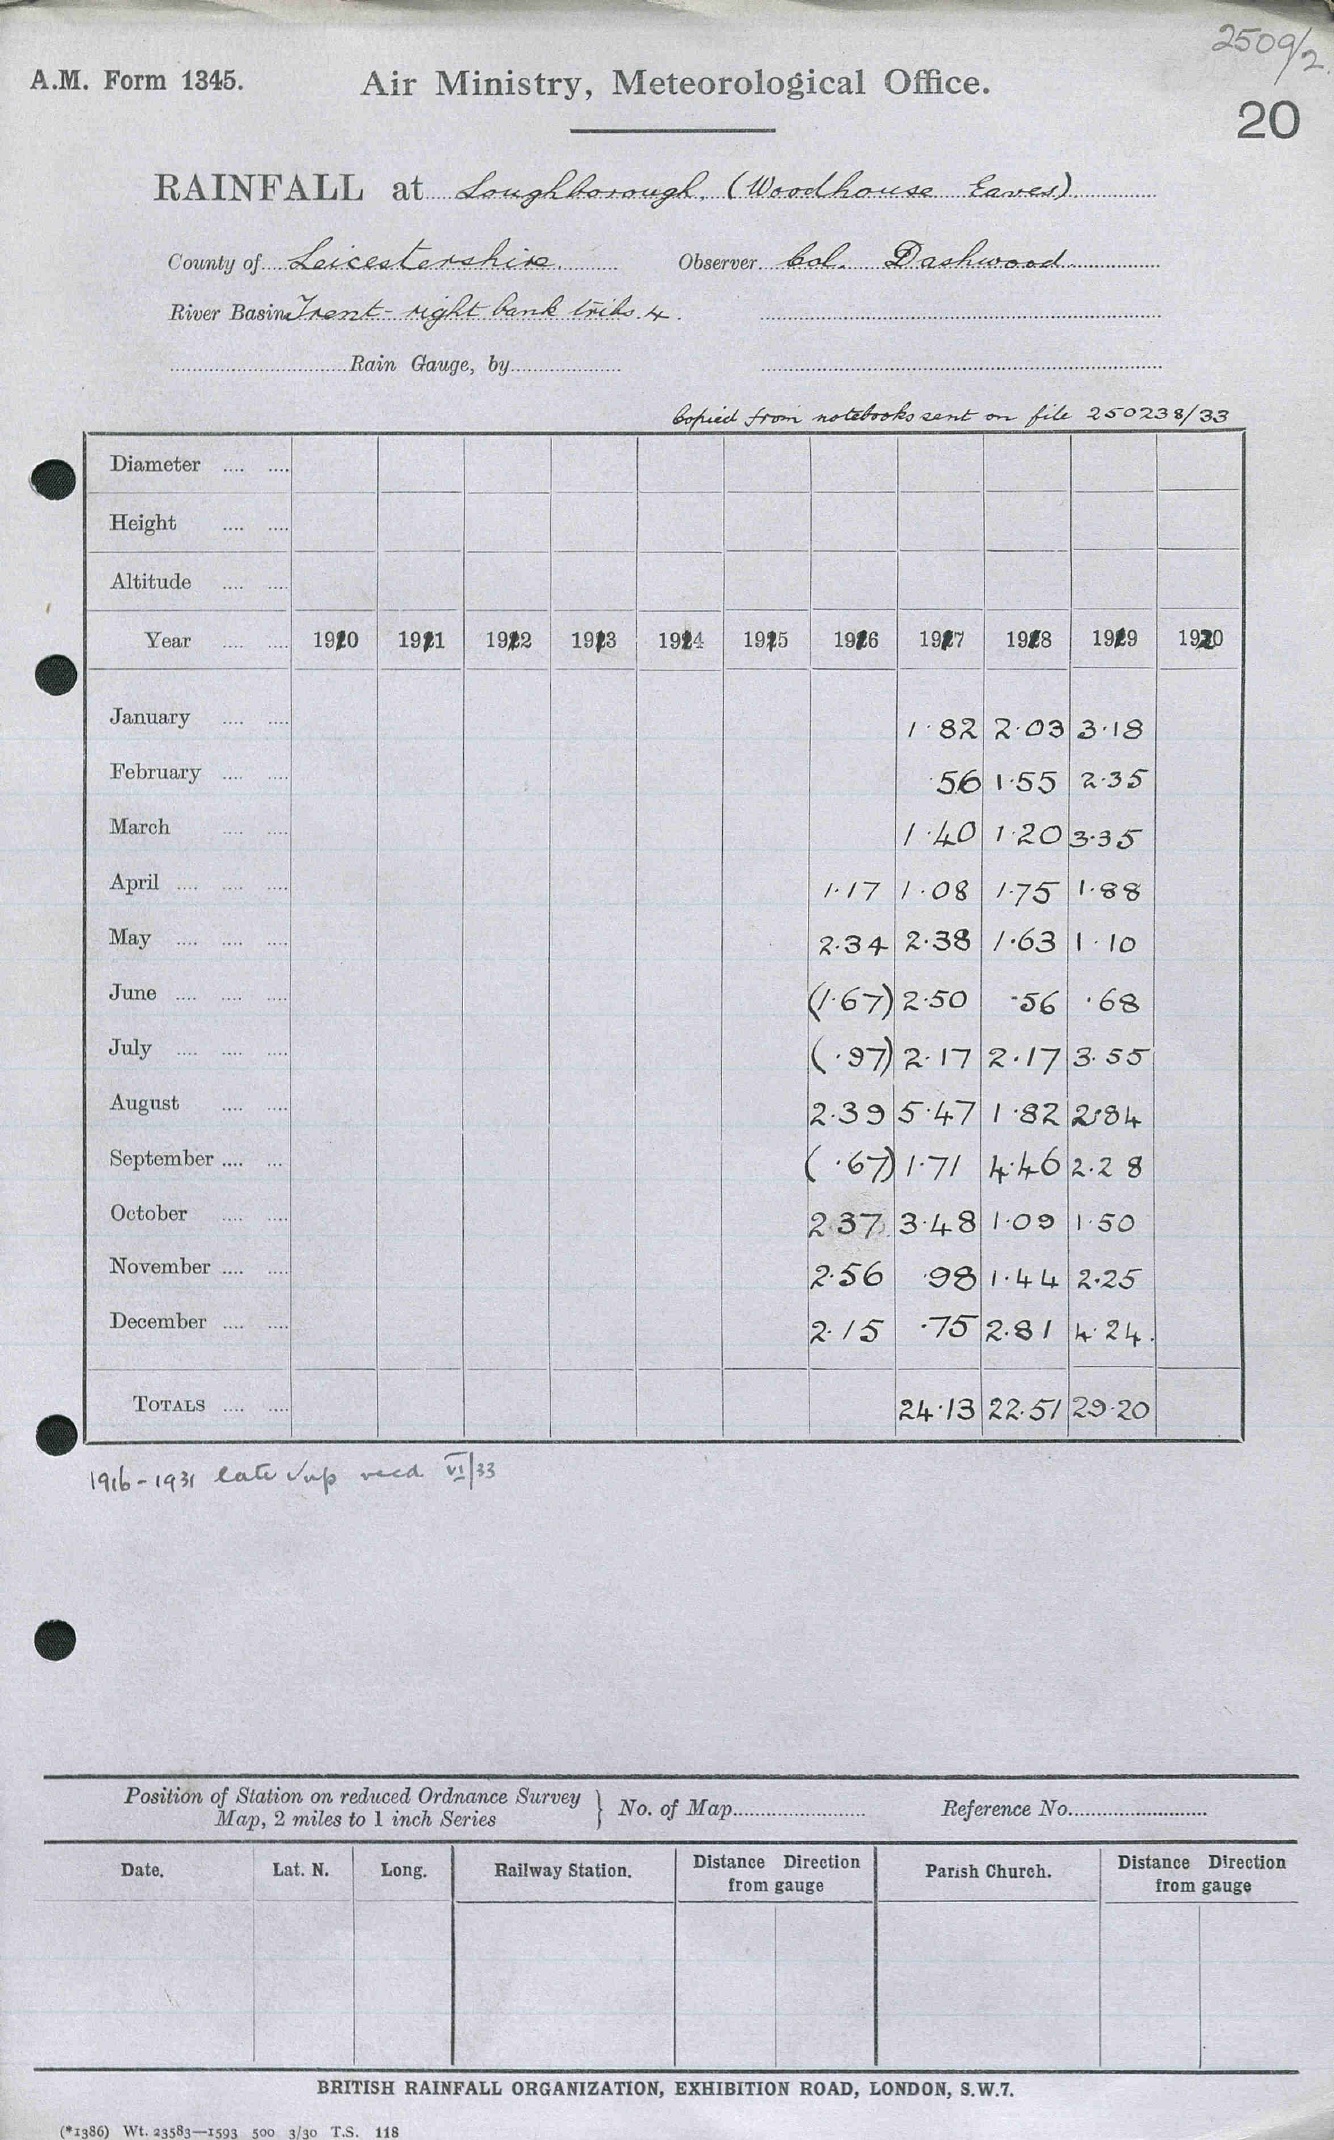 2509/2.
A.M. Form 1345.
Air Ministry, Meteorological Office.
20
RAINFALL at Loughborough. (Woodhouse Eaves)
County of Leicestershire. Observer Col. Dashwood
River Basin Trent - right bank tribs. 4.
Rain Gauge, by
Copied from notebooks sent on file 250238/33
Diameter .... ....
Height .... ....
Altitude .... ....
Year .... .... 1910 1911 1912 1913 1914 1915 1916 1917 1918 1919 1920
January .... .... 1.82 2.03 3.18
February .... .... .56 1.55 2.35
March .... .... 1.40 1.20 3.35
April .... .... .... 1.17 1.08 1.75 1.88
May .... .... .... 2.34 2.38 1.63 1.10
June .... .... .... (1.67) 2.50 .56 .68
July .... .... .... (.97) 2.17 2.17 3.55
August .... .... 2.39 5.47 1.82 2.84
September .... ... (.67) 1.71 4.46 2.28
October .... .... 2.37 3.48 1.09 1.50
November .... .... 2.56 .98 1.44 2.25
December .... .... 2.15 .75 2.81 4.24.
TOTALS .... .... 24.13 22.51 29.20
1916-1931 late recd VI/33
Position of Station on reduced Ordnance Survey
Map, 2 miles to 1 inch Series } No. of Map Reference No.
Date. Lat. N. Long. Railway Station. Distance Direction from gauge Parish Church. Distance Direction from gauge
BRITISH RAINFALL ORGANIZATION, EXHIBITION ROAD, LONDON, S.W.7.
(*1386) Wt. 23583—1593 500 3/30 T.S. 118